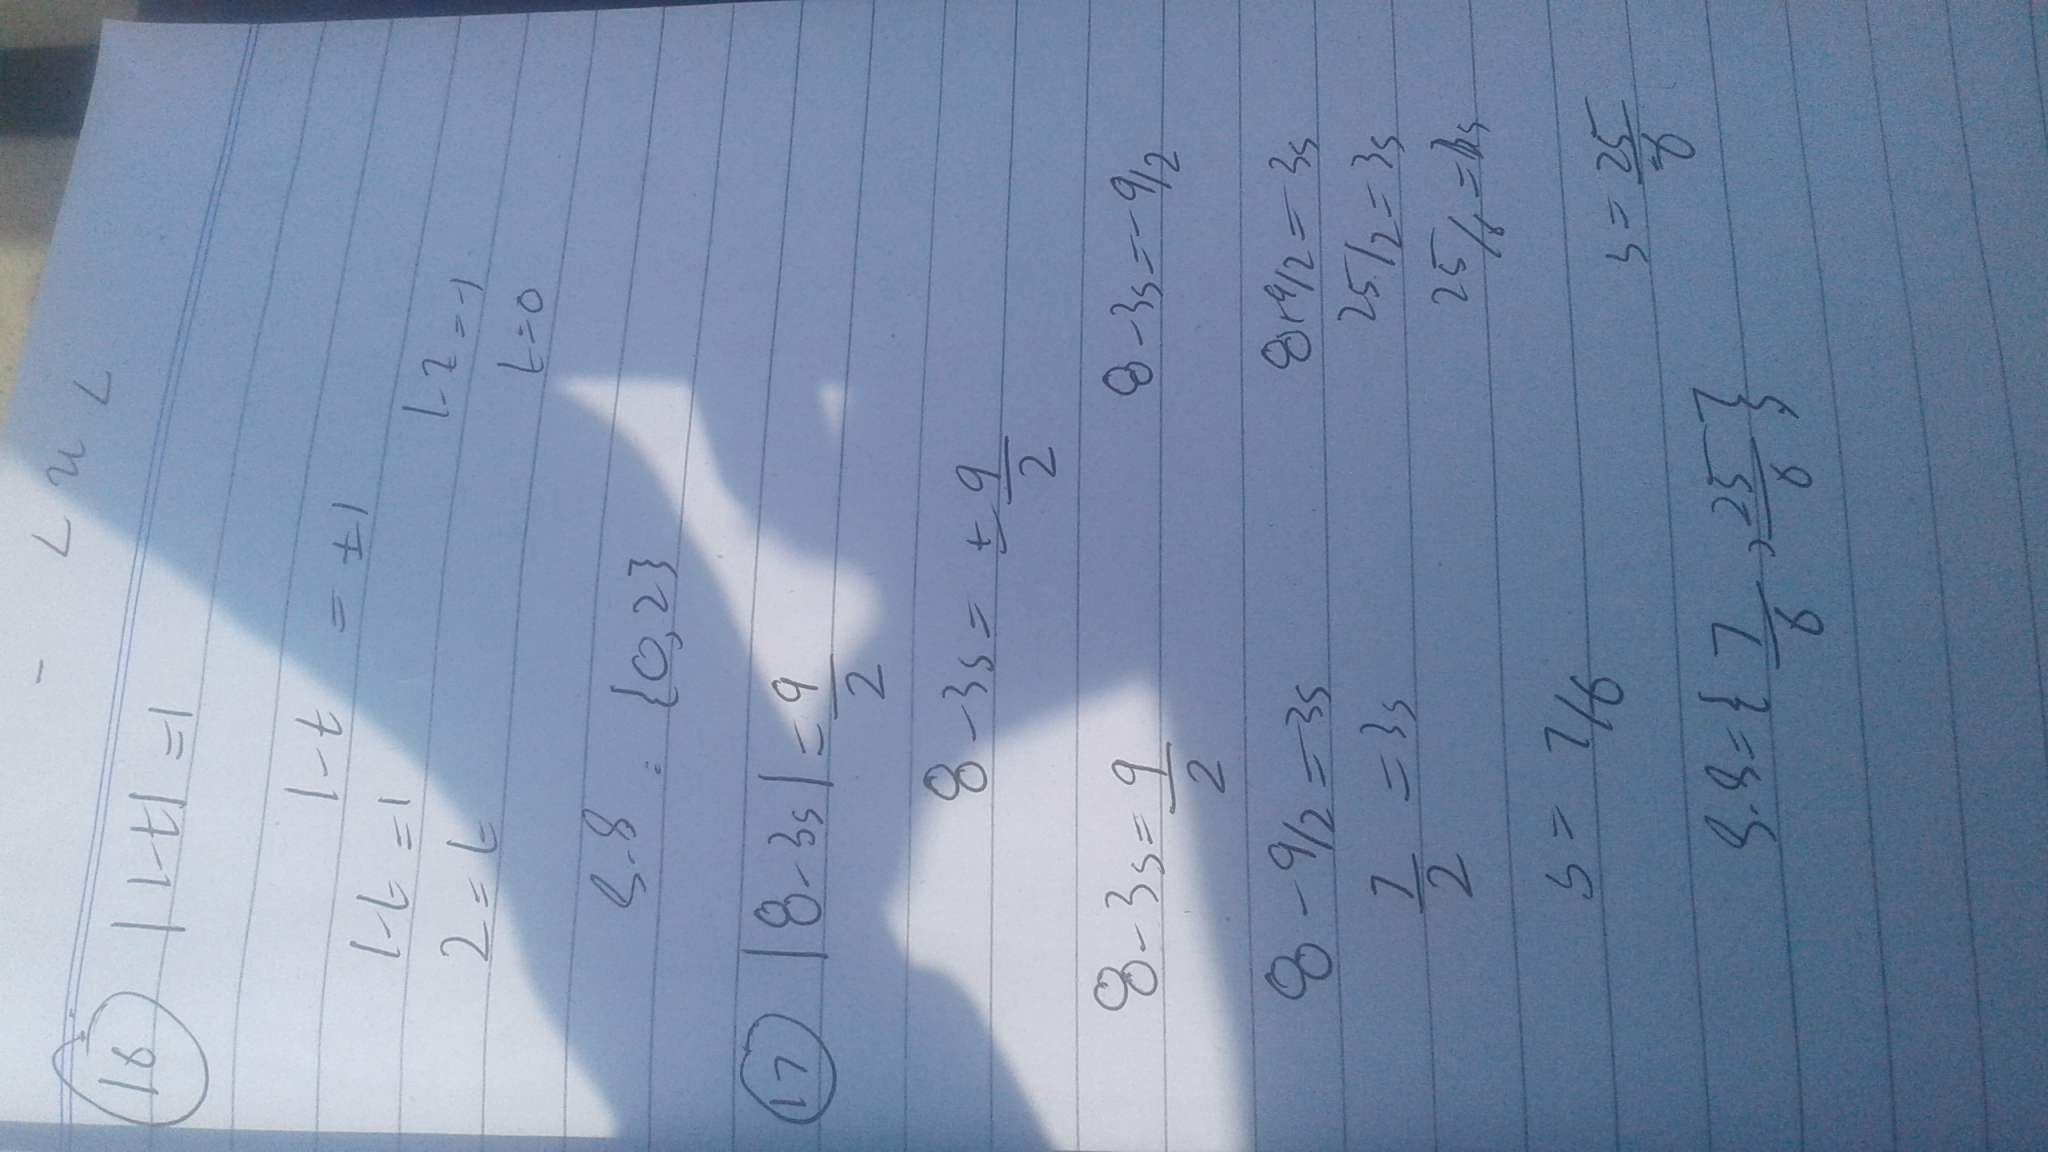 16 |1-t| = 1
1-t = ±1
1-t = 1 1-t = -1
2 = t t = 0
S.S = {0,2}
17 |8-3s| = 9/2
8-3s = ±9/2
8-3s = 9/2 8-3s = -9/2
8-9/2 = 3s 8+9/2 = 3s
7/2 = 3s 25/2 = 3s
25/6 = s
s = 7/6 s = 25/6
S.S = {7/6, 25/6}